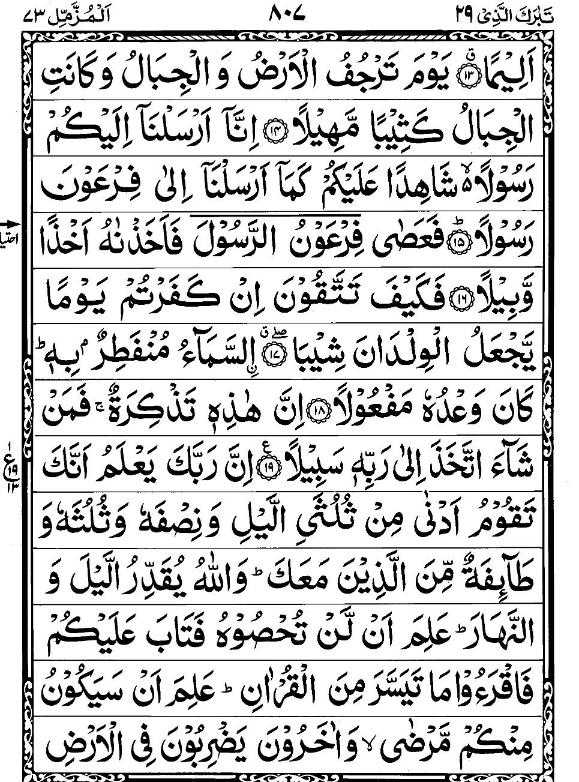 تَبٰرَكَ الَّذِیْ ۲۹ ۸۰۷ اَلْمُزَّمِّل ۷۳
اَلِیْمًا ۝۱۳ۗ یَوْمَ تَرْجُفُ الْاَرْضُ وَ الْجِبَالُ وَ كَانَتِ
الْجِبَالُ كَثِیْبًا مَّهِیْلًا ۝۱۴ اِنَّاۤ اَرْسَلْنَاۤ اِلَیْكُمْ
رَسُوْلًا ۙ۬ شَاهِدًا عَلَیْكُمْ كَمَاۤ اَرْسَلْنَاۤ اِلٰی فِرْعَوْنَ
رَسُوْلًا ۝۱۵ؕ فَعَصٰی فِرْعَوْنُ الرَّسُوْلَ فَاَخَذْنٰهُ اَخْذًا
وَّبِیْلًا ۝۱۶ فَكَیْفَ تَتَّقُوْنَ اِنْ كَفَرْتُمْ یَوْمًا
یَّجْعَلُ الْوِلْدَانَ شِیْبَا ۝۱۷ۗۖ اِ۟لسَّمَآءُ مُنْفَطِرٌۢ بِهٖ ؕ
كَانَ وَعْدُهٗ مَفْعُوْلًا ۝۱۸ اِنَّ هٰذِهٖ تَذْكِرَةٌ ۚ فَمَنْ
شَآءَ اتَّخَذَ اِلٰی رَبِّهٖ سَبِیْلًا ۝۱۹ اِنَّ رَبَّكَ یَعْلَمُ اَنَّكَ
تَقُوْمُ اَدْنٰی مِنْ ثُلُثَیِ الَّیْلِ وَ نِصْفَهٗ وَ ثُلُثَهٗ وَ
طَآىِٕفَةٌ مِّنَ الَّذِیْنَ مَعَكَ ؕ وَ اللّٰهُ یُقَدِّرُ الَّیْلَ وَ
النَّهَارَ ؕ عَلِمَ اَنْ لَّنْ تُحْصُوْهُ فَتَابَ عَلَیْكُمْ
فَاقْرَءُوْا مَا تَیَسَّرَ مِنَ الْقُرْاٰنِ ؕ عَلِمَ اَنْ سَیَكُوْنُ
مِنْكُمْ مَّرْضٰی ۙ وَ اٰخَرُوْنَ یَضْرِبُوْنَ فِی الْاَرْضِ
ع ۱۹ ۱۳